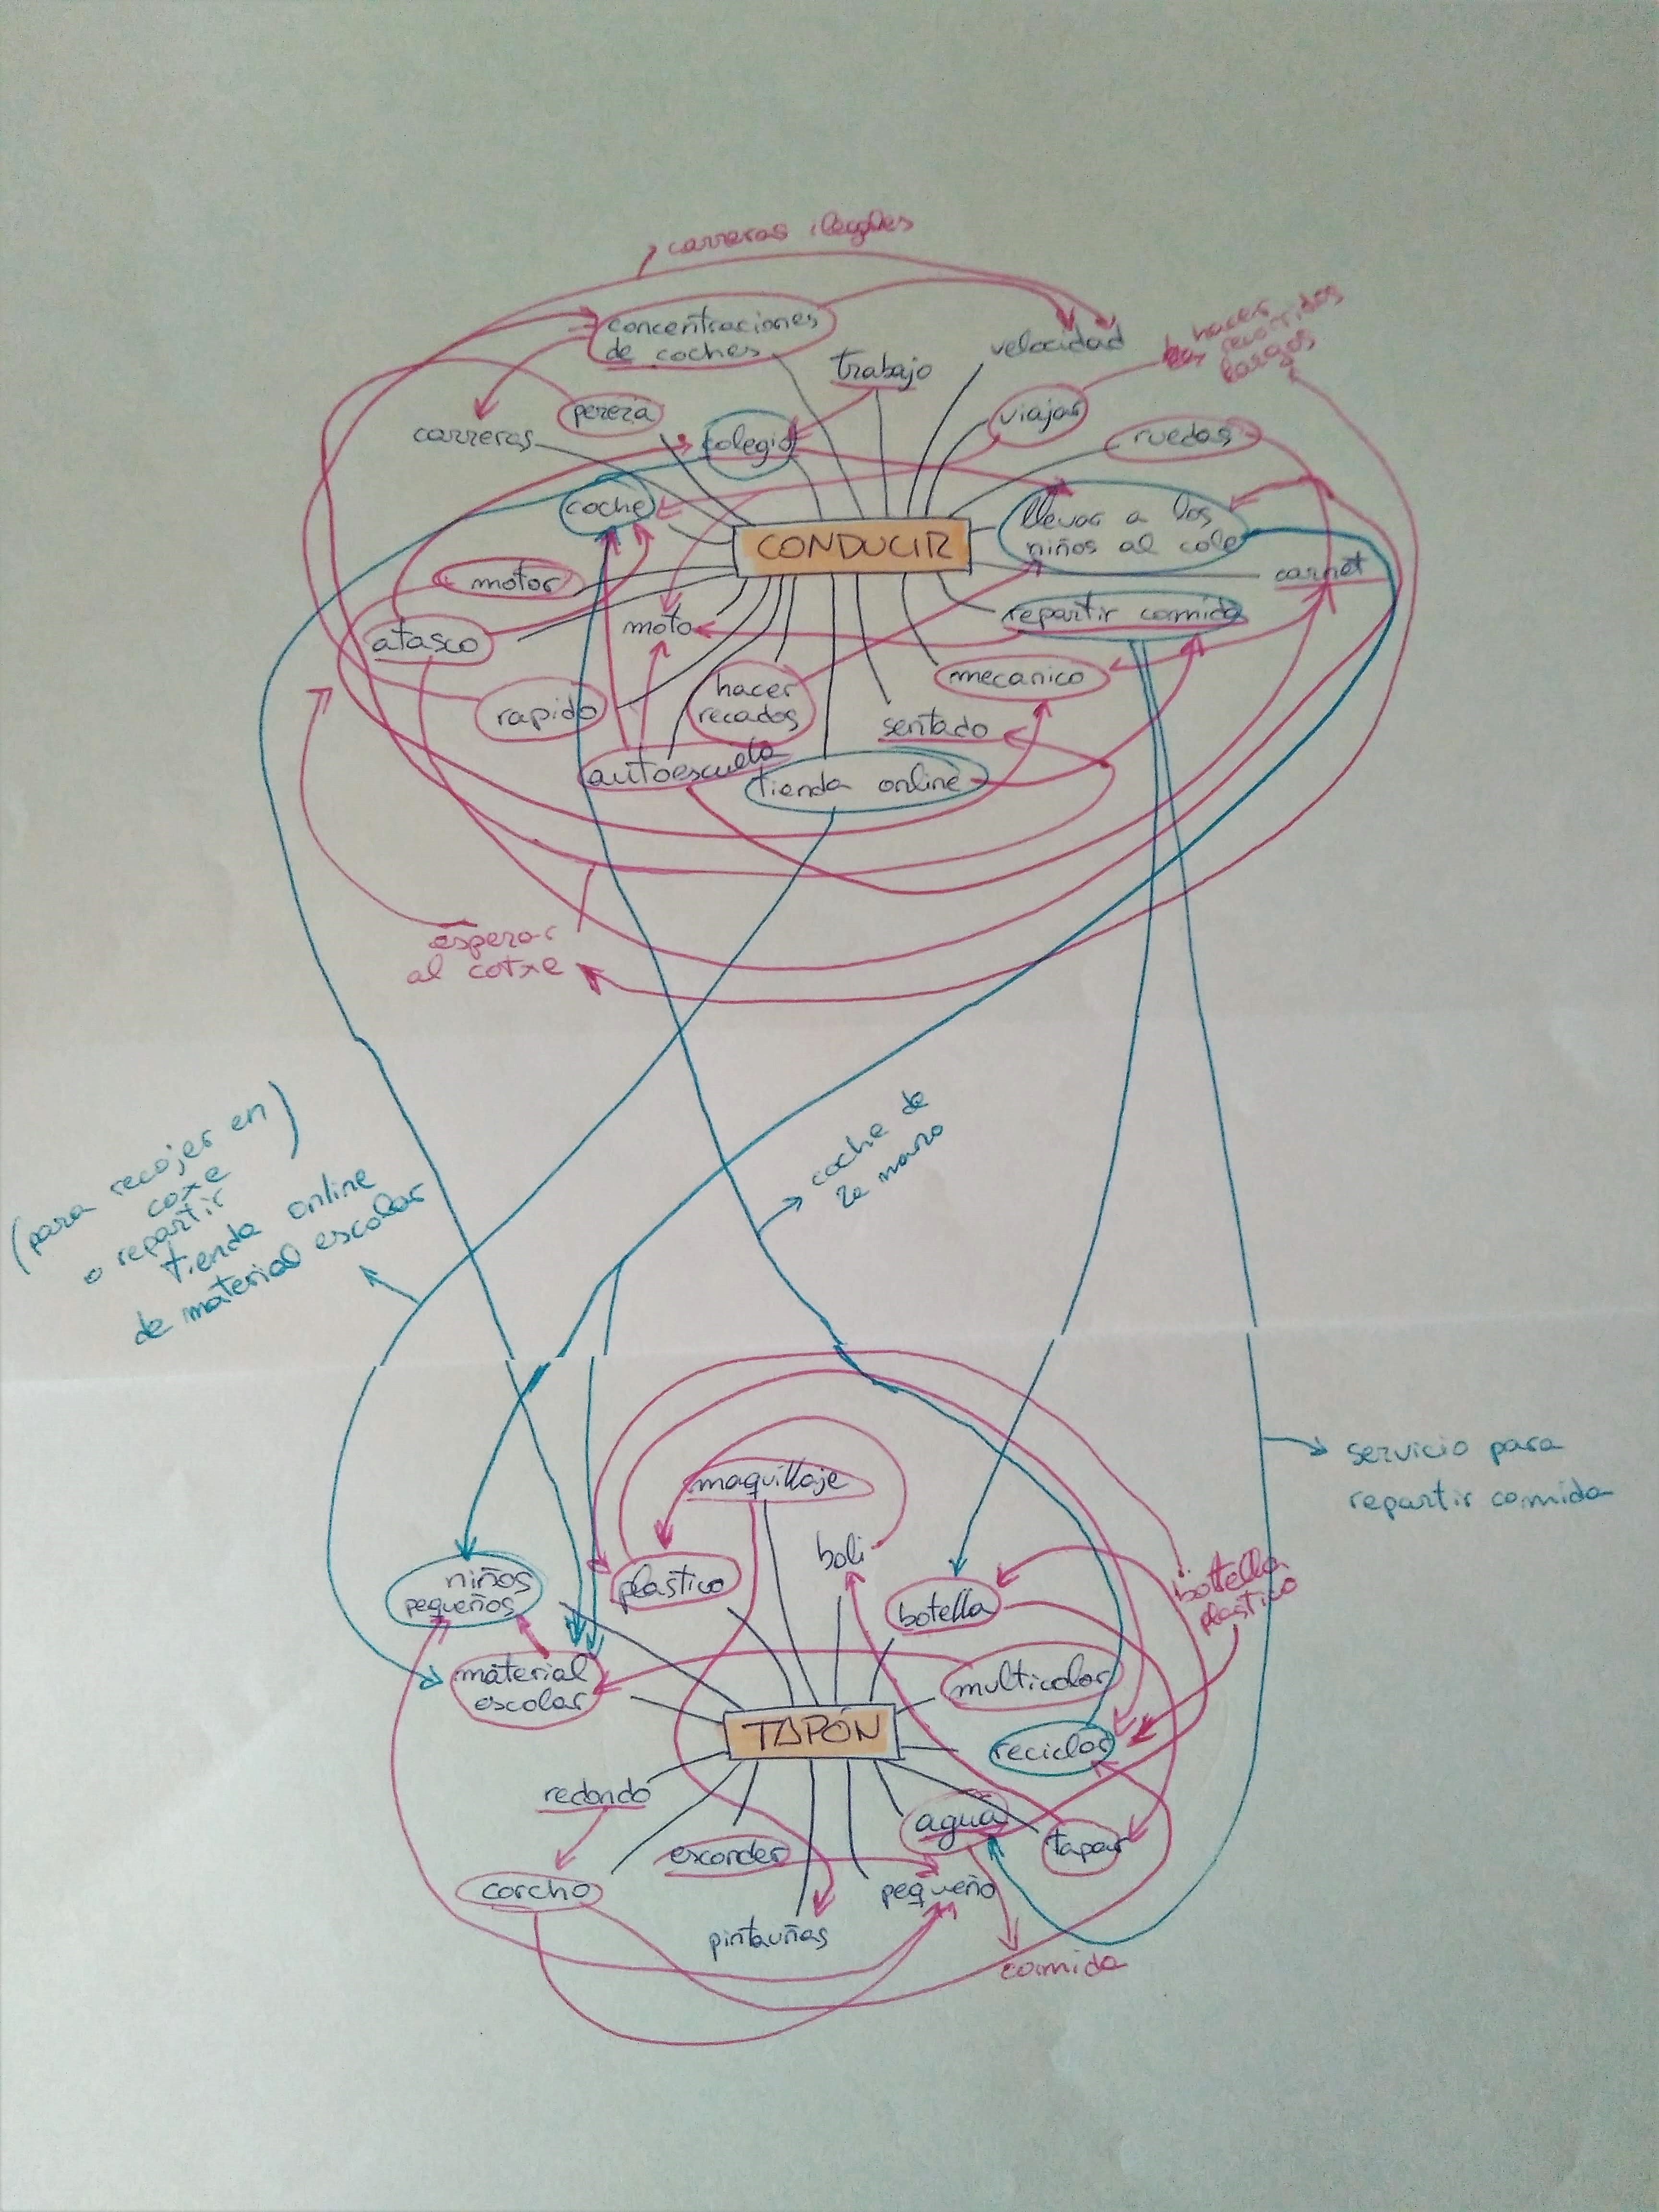 carreras ilegales
concentraciones
de coches
trabajo
velocidad
hacer
recorridos
largos
pereza
viajar
carreras
colegio
ruedas
coche
llevar a los
niños al cole
CONDUCIR
motor
carnet
atasco
moto
repartir comida
rapido
hacer
recados
mecanico
sentado
autoescuela
tienda online
esperar
al cotxe
(para recojer en)
coxe
o repartir
tienda online
de material escolar
coche de
2a mano
servicio para
repartir comida
maquillaje
boli
niños
pequeños
plastico
botella
botella
plastico
material
escolar
multicolor
TAPÓN
reciclar
redondo
agua
tapar
esconder
corcho
pequeño
pintauñas
comida